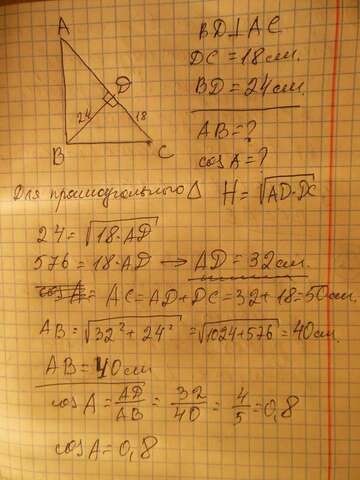 A
BD⊥AC
DC=18см.
BD=24см.
D
24
18
B
C
AB=?
cosA=?
Для прямоугольного Δ H=√AD·DC
24=√18·AD
576=18·AD → AD=32см.
AC=AD+DC=32+18=50см
AB=√32²+24²=√1024+576=40см
AB=40см
cosA=AD/AB=32/40=4/5=0,8
cosA=0,8